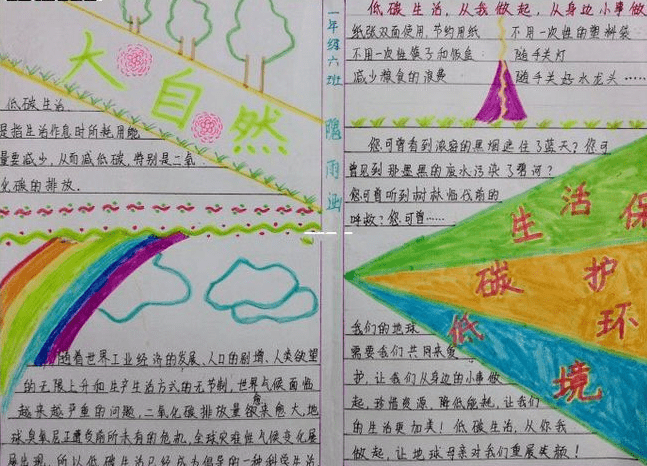 大自然
低碳生活
是指生活作息时所耗用能
量要减少,从而减低碳,特别是二氧
化碳的排放.
随着世界工业经济的发展、人口的剧增、人类欲望
的无限上升和生产生活方式的无节制,世界气候面临
越来越严重的问题,二氧化碳排放量愈来愈大,地
球臭氧层正遭受前所未有的危机,全球灾难性气候变化屡
屡出现,所以低碳生活已经成为倡导的一种科学生活
一年级六班
雨涵
低碳生活,从我做起,从身边小事做
纸张双面使用,节约用纸
不用一次性的塑料袋
不用一次性筷子和饭盒
随手关灯
减少粮食的浪费
随手关好水龙头……
您可曾看到浓密的黑烟遮住了蓝天?您可
曾见到那墨黑的废水污染了碧河?
您可曾听到树林临伐前的
呼救?您可曾……
低碳生活
保护环境
我们的地球
需要我们共同来爱
护,让我们从身边的小事做
起,珍惜资源、降低能耗,让我们
的生活更加美!低碳生活,从你我
做起,让地球母亲对我们重展笑颜!